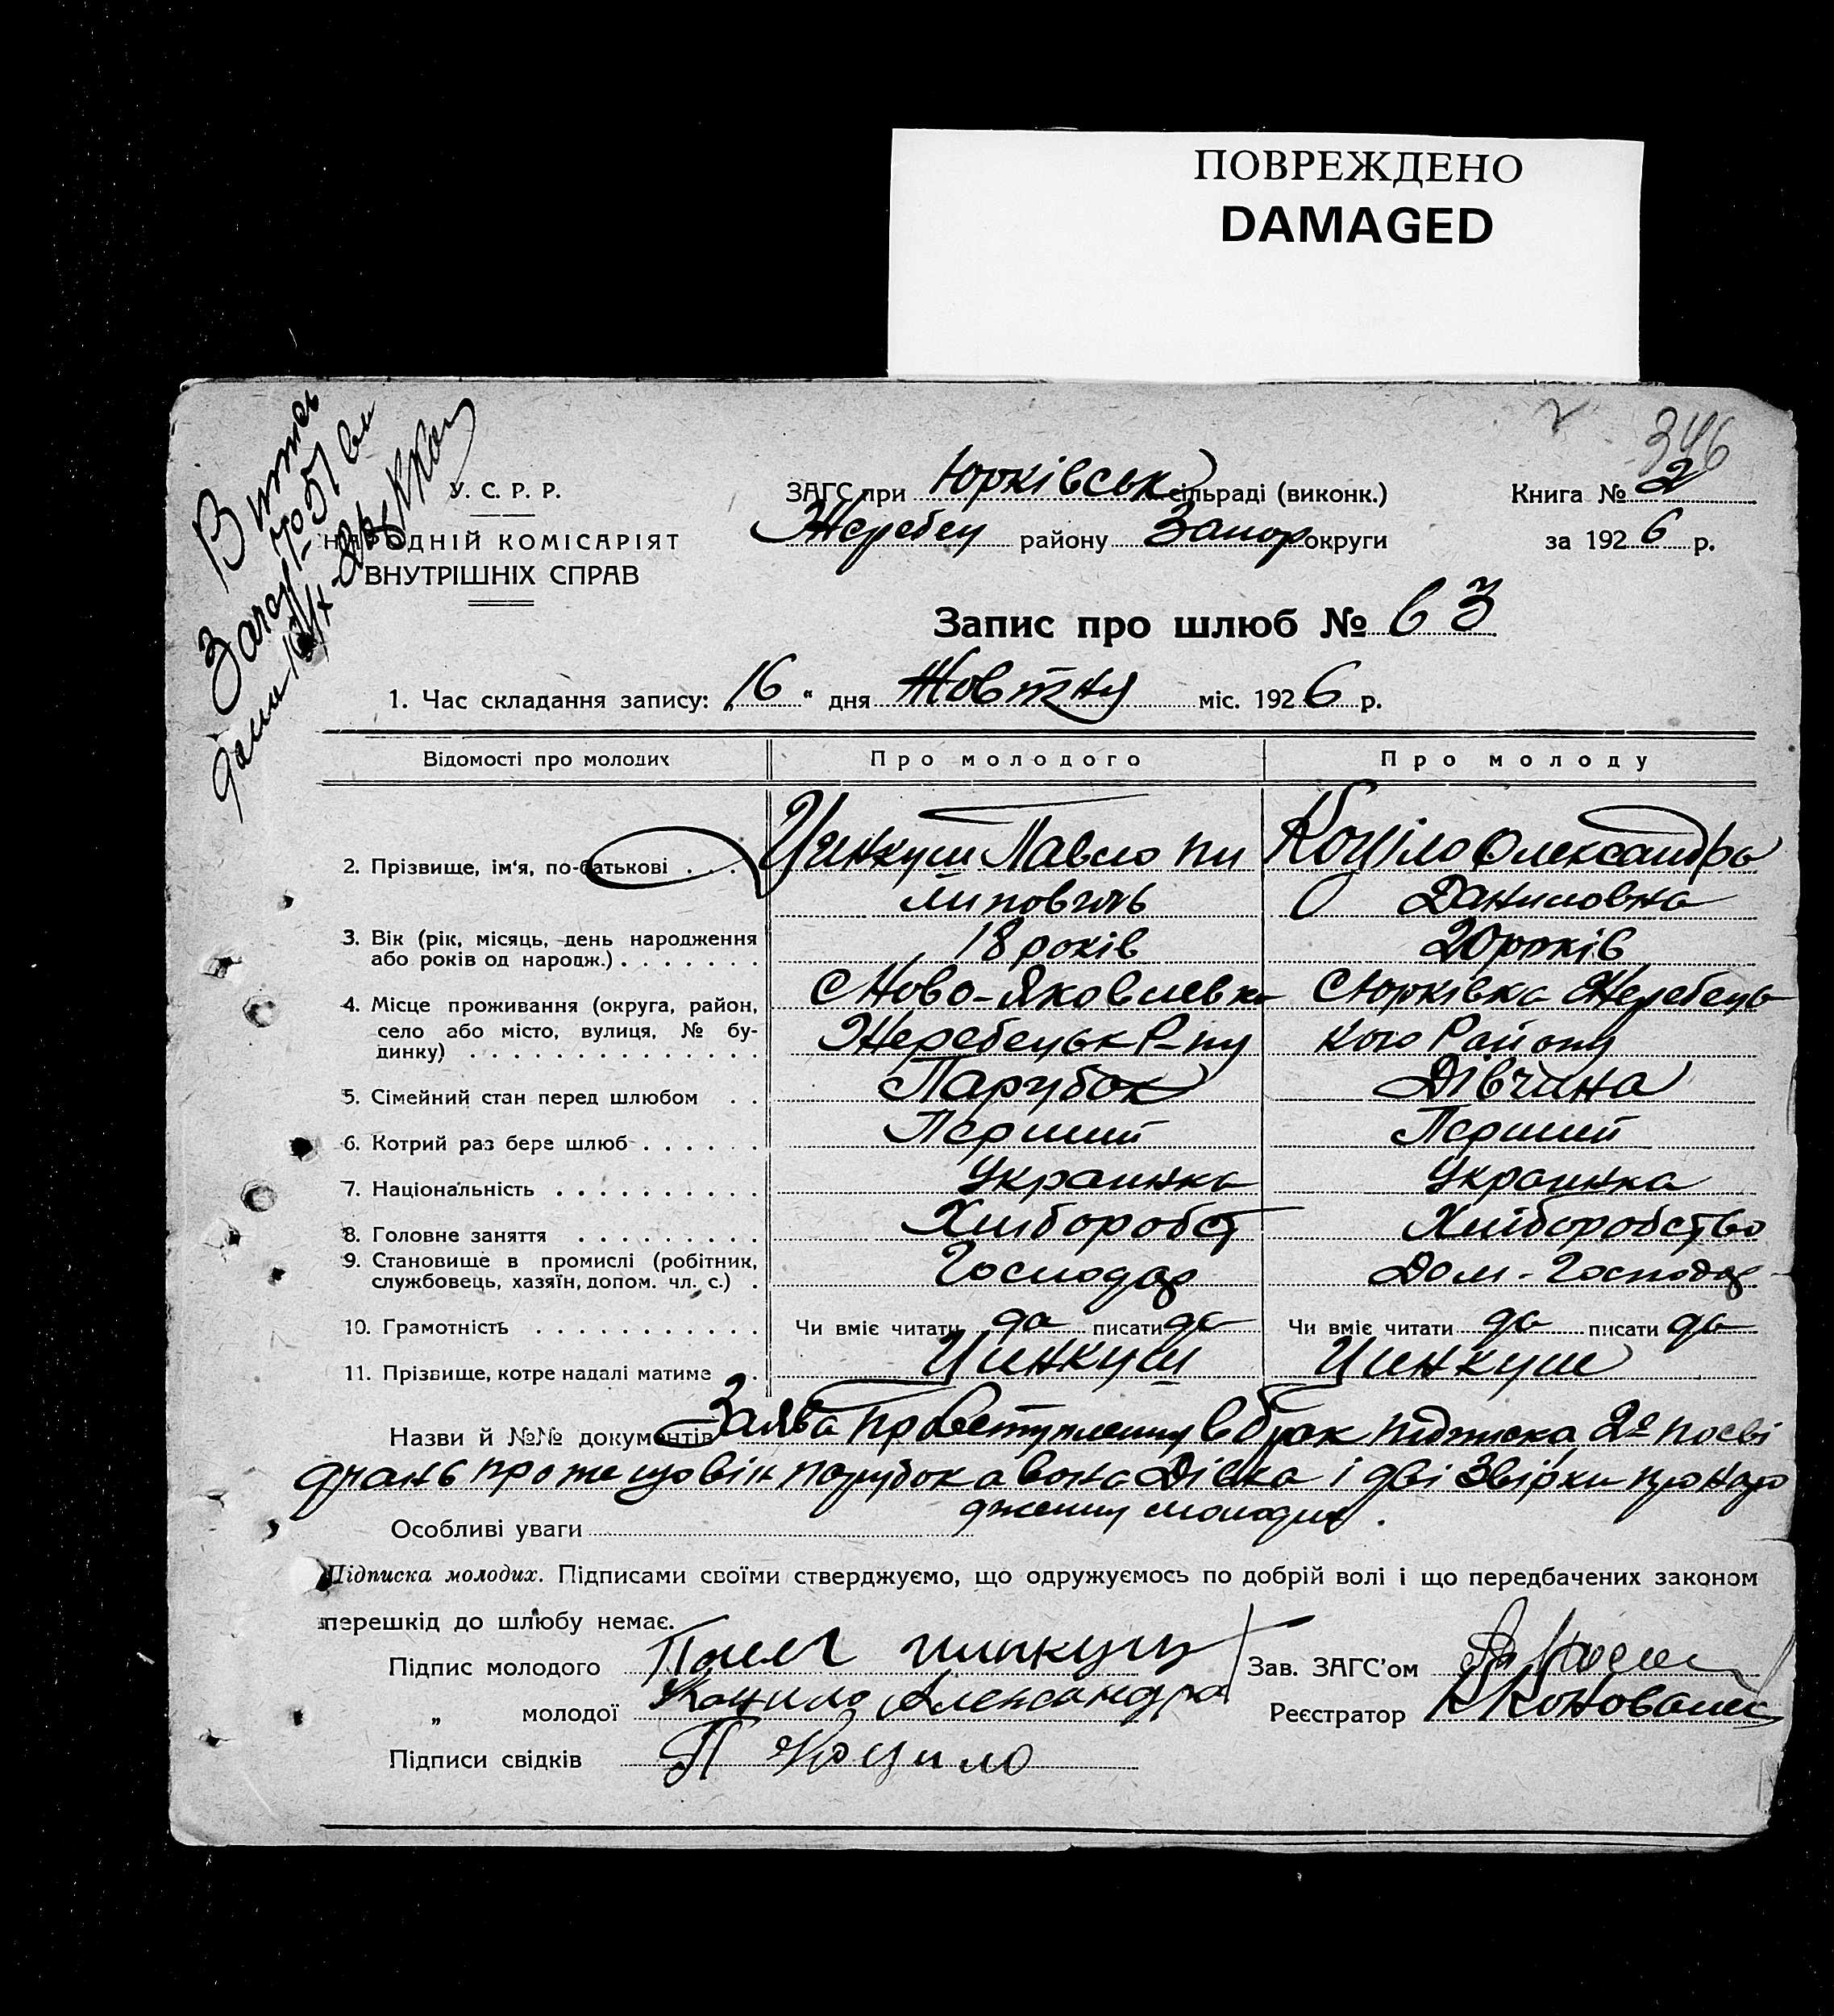 ПОВРЕЖДЕНО
DAMAGED
346
У. С. Р. Р.
НАРОДНІЙ КОМІСАРІЯТ
ВНУТРІШНІХ СПРАВ
ЗАГС при Юрківськ сільраді (виконк.)
Жеребец району Запор округи
Книга № 2
за 1926 р.
Запис про шлюб № 63
1. Час складання запису: „16“ дня Жовтня міс. 1926 р.
Відомості про молодих Про молодого Про молоду
2. Прізвище, ім'я, по-батькові . . . Цинкуш Павло Пи Коціло Олександра
липовичь Даниловна
3. Вік (рік, місяць, день народження
або років од народж.) . . . . . . . 18 років 20 років
4. Місце проживання (округа, район, с Ново-Яковлевка с Юрківка Жеребець
село або місто, вулиця, № бу-
динку) . . . . . . . . . . . . . . Жеребецьк Р-ну кого Району
5. Сімейний стан перед шлюбом . . Парубок Дівчина
6. Котрий раз бере шлюб . . . . . . Перший Перший
7. Національність . . . . . . . . . . Украинка Украинка
8. Головне заняття . . . . . . . . . Хліборобст Хліборобство
9. Становище в промислі (робітник,
службовець, хазяїн, допом. чл. с.) . Господар Дом-Господар
10. Грамотність . . . . . . . . . . . Чи вміє читати да писати да Чи вміє читати да писати да
11. Прізвище, котре надалі матиме . Цинкуш Цинкуш
Назви й №№ документів Заява про вступленну в брак підписка 2е посві
дчань про те що він парубок а вона Дівка і дві Звірки про наро
дженну молодих.
Особливі уваги
Підписка молодих. Підписами своїми стверджуємо, що одружуємось по добрій волі і що передбачених законом
перешкід до шлюбу немає.
Підпис молодого Цинкуш Зав. ЗАГС'ом
„ молодої Коцило Александра Реєстратор К Коновалец
Підписи свідків П Коцило